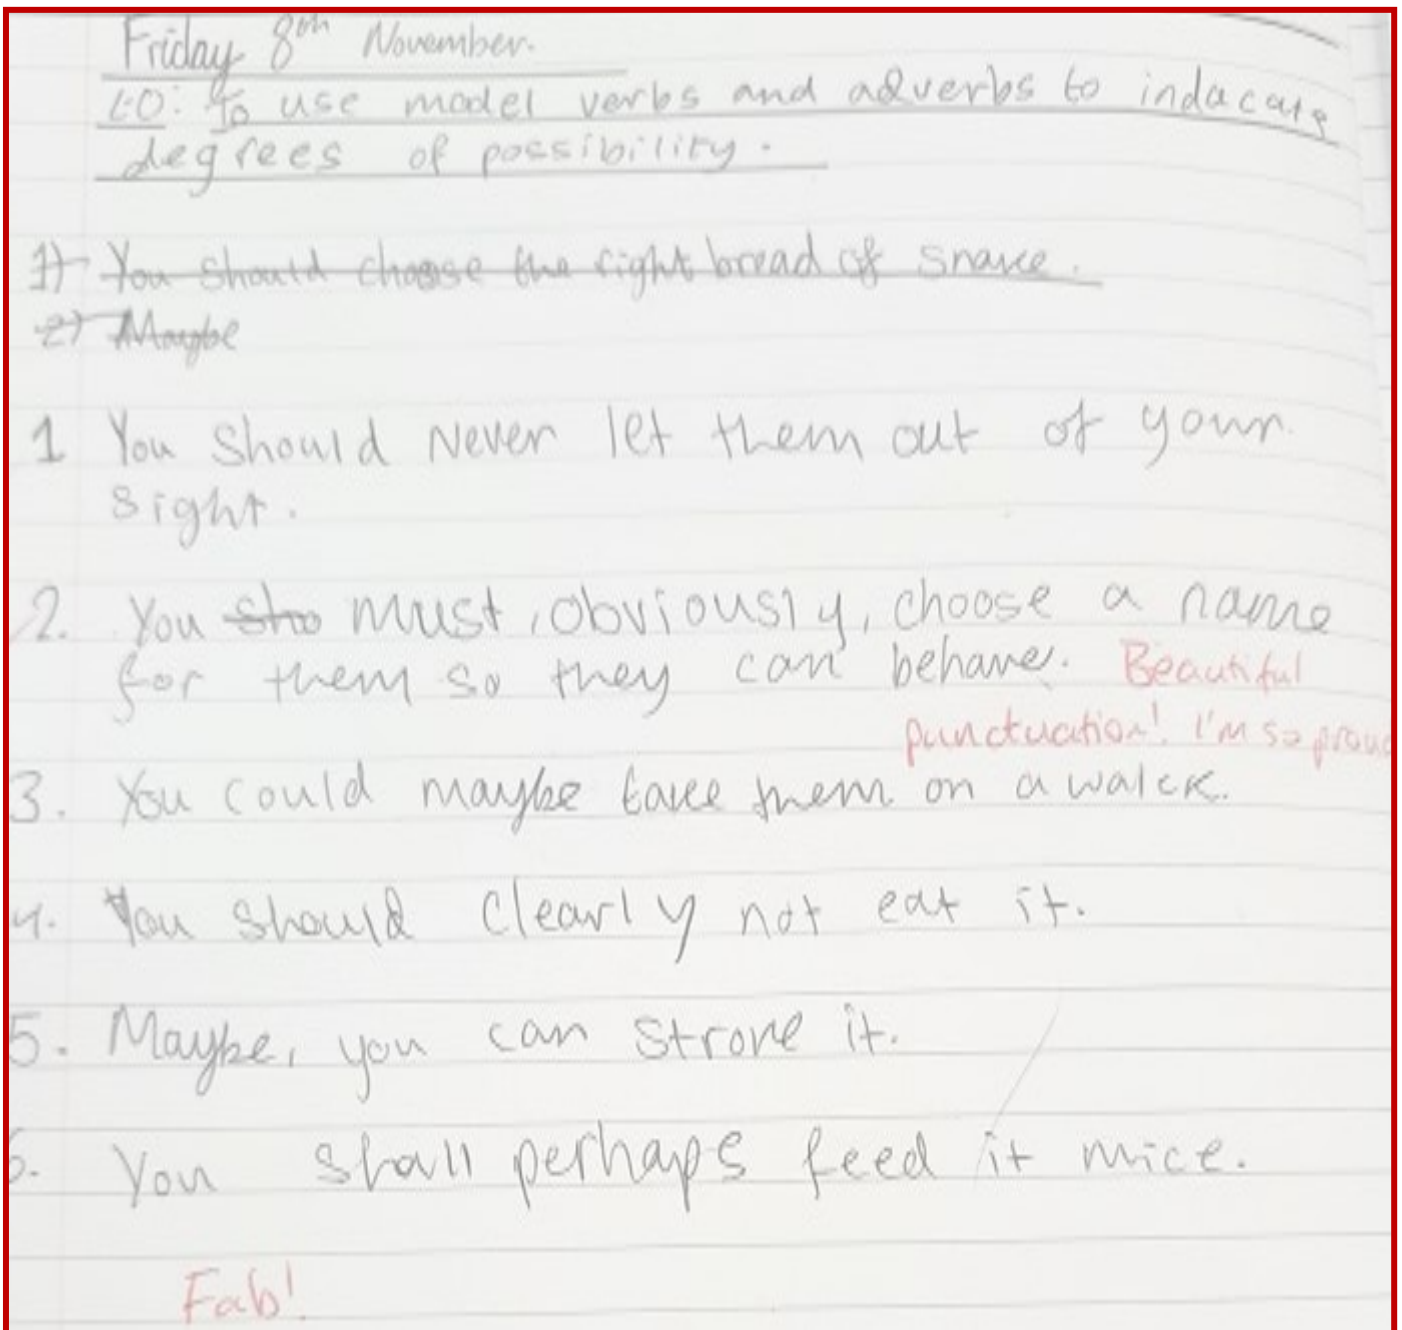 Friday 8th November.
LO: To use model verbs and adverbs to indacate
degrees of possibility.
1) You should choose the right bread of snake.
2) Maybe
1 You should never let them out of your
sight.
2. You sho must, obviously, choose a name
for them so they can behave. Beautiful
punctuation! I'm so proud
3. You could maybe take them on a walck.
4. You should clearly not eat it.
5. Maybe, you can stroke it.
6. You shall perhaps feed it mice.
Fab!